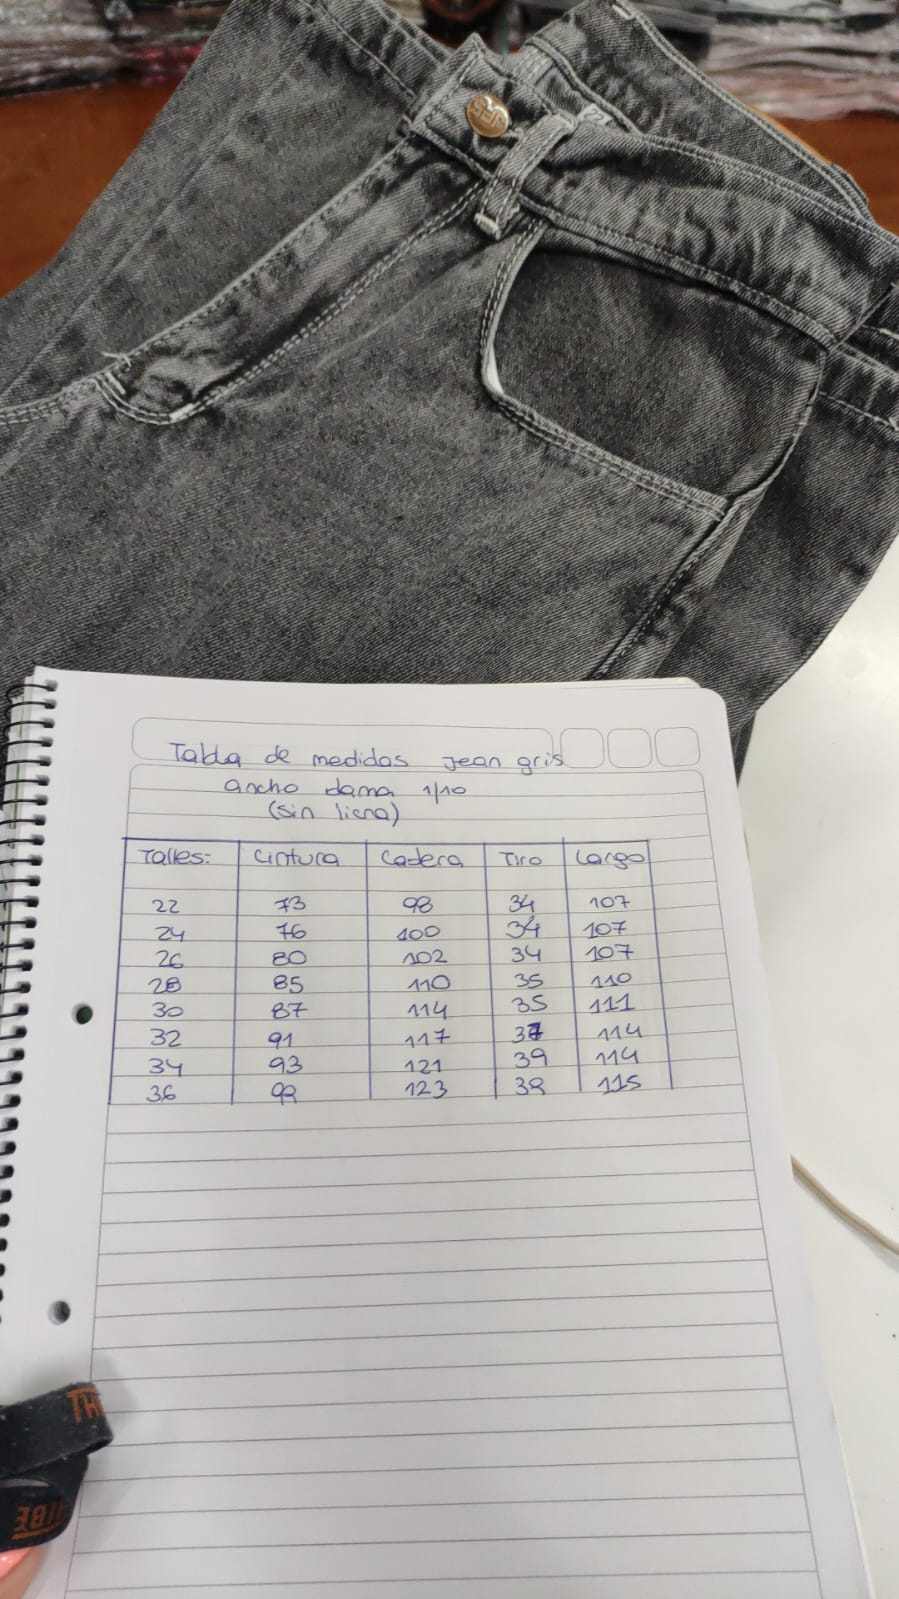 Tabla de medidas Jean gris
ancho dama 1/10
(sin licra)
Talles: Cintura Cadera Tiro Largo
22 73 98 34 107
24 76 100 34 107
26 80 102 34 107
28 85 110 35 110
30 87 114 35 111
32 91 117 37 114
34 93 121 39 114
36 123 115